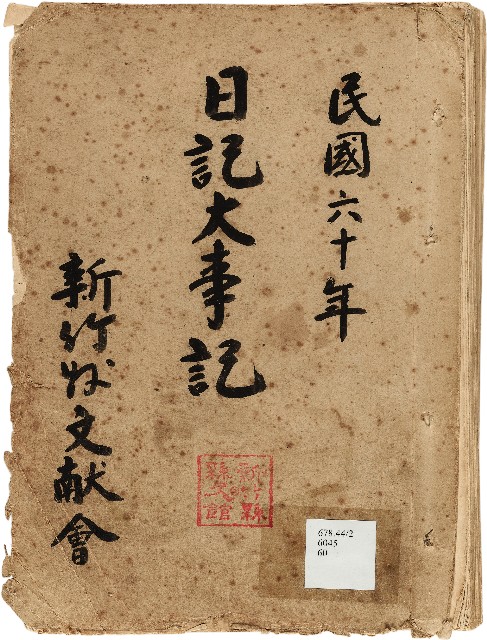 民國六十年
日記大事記
新竹縣文献會
新竹縣
縣史館
678.44/2
6045
60